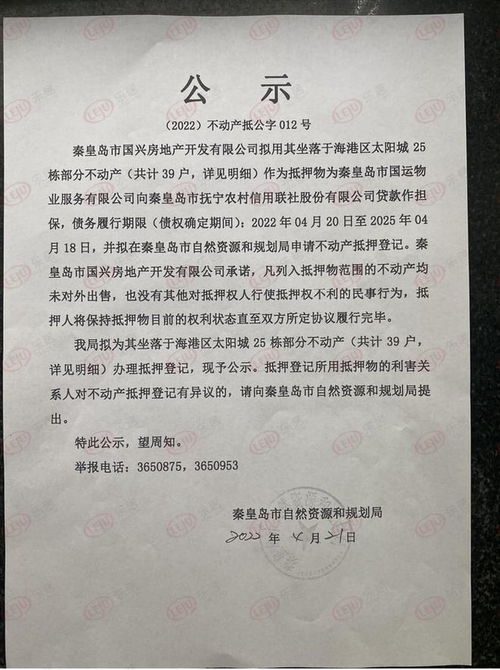 公 示
（2022）不动产抵公字 012 号
秦皇岛市国兴房地产开发有限公司拟用其坐落于海港区太阳城 25
栋部分不动产（共计 39 户，详见明细）作为抵押物为秦皇岛市国运物
业服务有限公司向秦皇岛市抚宁农村信用联社股份有限公司贷款作担
保，债务履行期限（债权确定期间）：2022 年 04 月 20 日至 2025 年 04
月 18 日，并拟在秦皇岛市自然资源和规划局申请不动产抵押登记。秦
皇岛市国兴房地产开发有限公司承诺，凡列入抵押物范围的不动产均
未对外出售，也没有其他对抵押权人行使抵押权不利的民事行为，抵
押人将保持抵押物目前的权利状态直至双方所定协议履行完毕。
我局拟为其坐落于海港区太阳城 25 栋部分不动产（共计 39 户，
详见明细）办理抵押登记，现予公示。抵押登记所用抵押物的利害关
系人对不动产抵押登记有异议的，请向秦皇岛市自然资源和规划局提
出。
特此公示，望周知。
举报电话：3650875，3650953
秦皇岛市自然资源和规划局
2022 年 4 月 21 日